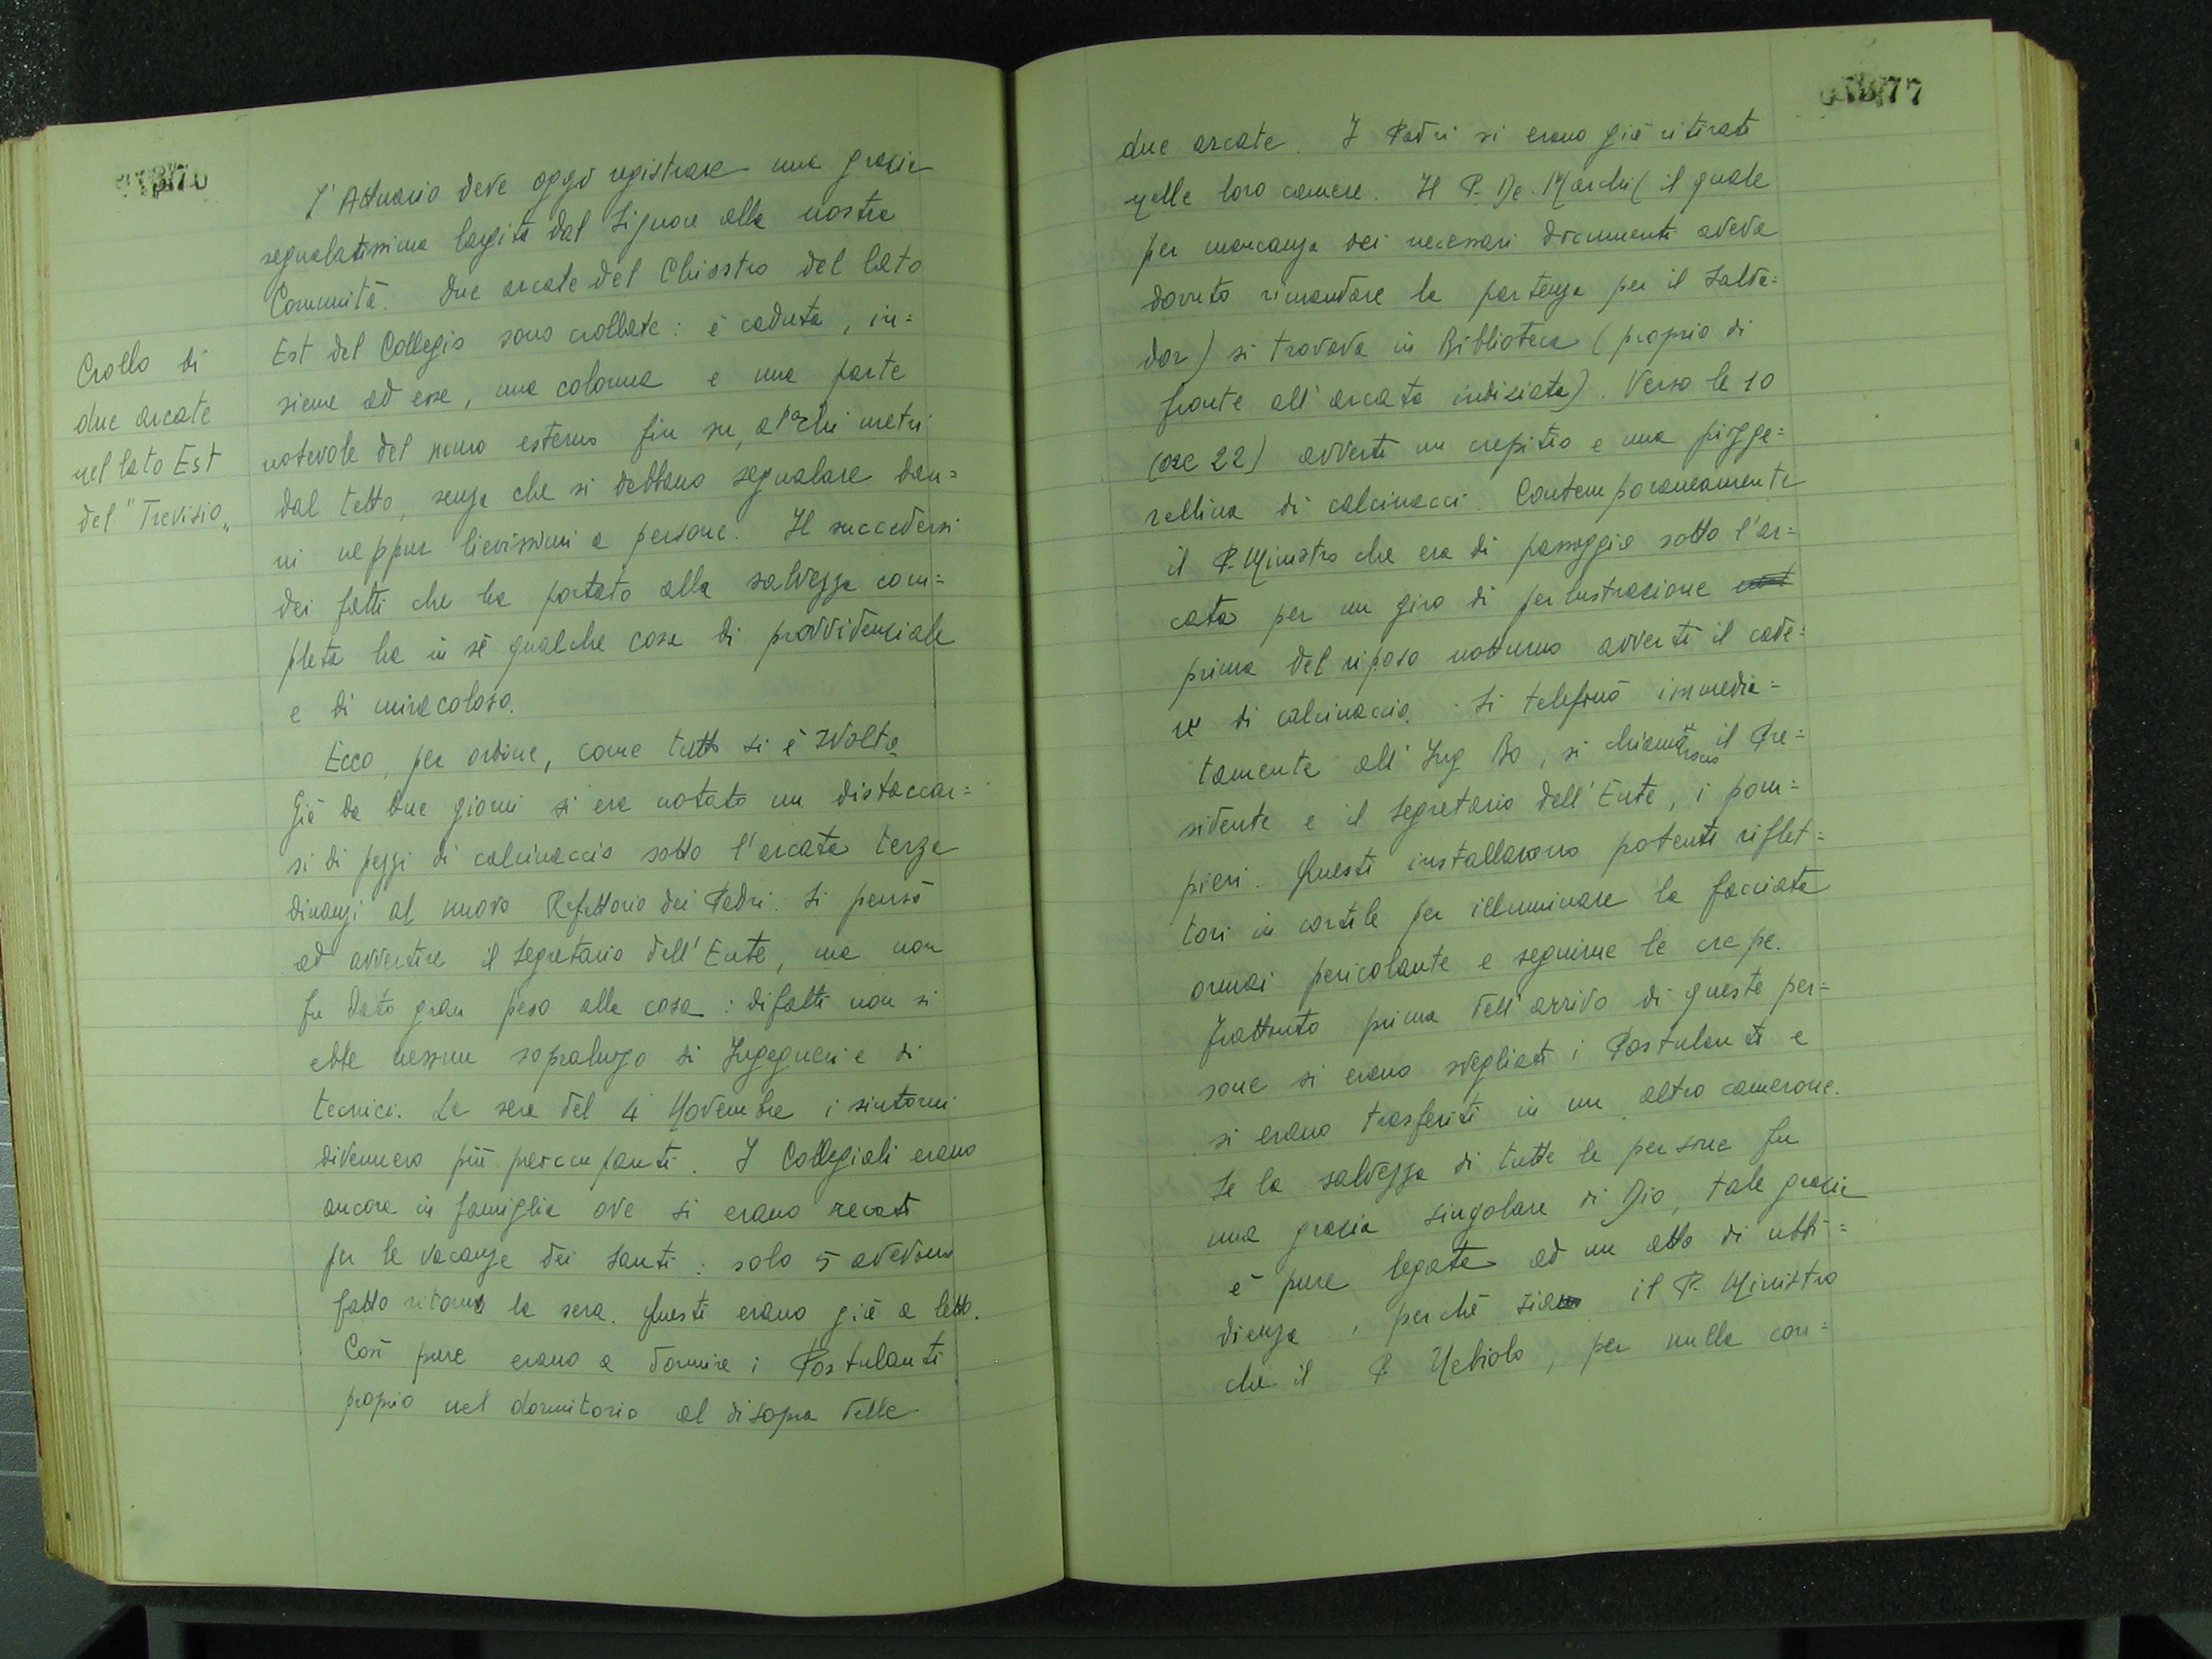 Crollo di
due arcate
nel lato Est
del "Trevisio"
L'Attuario deve oggi registrare una grazia
segnalatissima largita dal Signore alla nostra
Comunità. Due arcate del Chiostro del lato
Est del Collegio sono crollate: è caduta, in=
sieme ad esse, una colonna e una parte
notevole del muro esterno fin su, a pochi metri
dal tetto, senza che si debbano segnalare dan=
ni neppur lievissimi a persone. Il succedersi
dei fatti che ha portato alla salvezza com=
pleta ha in sè qualche cosa di provvidenziale
e di miracoloso.
Ecco, per ordine, come tutto si è svolto
Già da due giorni si era notato un distaccar=
si di pezzi di calcinaccio sotto l'arcata terza
dinanzi al nuovo Refettorio dei Padri. Si pensò
ad avvertire il Segretario dell'Ente, ma non
fu dato gran peso alla cosa: difatti non si
ebbe nessun sopraluogo di Ingegneri e di
tecnici. La sera del 4 Novembre i sintomi
divennero più preoccupanti. I Collegiali erano
ancora in famiglia ove si erano recati
per le vacanze dei Santi: solo 5 avevano
fatto ritorno la sera. Questi erano già a letto.
Così pure erano a dormire i Postulanti
proprio nel dormitorio al disopra delle
77
due arcate. I Padri si erano già ritirati
nelle loro camere. Il P. De. Marchi (il quale
per mancanza dei necessari documenti aveva
dovuto rimandare la partenza per il Salva=
dor) si trovava in Biblioteca (proprio di
fronte all'arcata indiziata). Verso le 10
(ore 22) avvertì un crepitio e una piogge=
rellina di calcinacci. Contemporaneamente
il P. Ministro che era di passaggio sotto l'ar=
cata per un giro di perlustrazione
prima del riposo notturno avvertì il cade=
re di calcinaccio. Si telefonò immedia=
tamente all'Ing Bo, si chiamarono il Pre=
sidente e il Segretario dell'Ente, i pom=
pieri. Questi installarono potenti riflet=
tori in cortile per illuminare la facciata
ormai pericolante e seguirne le crepe.
Frattanto prima dell'arrivo di queste per=
sone si erano svegliati i Postulanti e
si erano trasferiti in un altro camerone.
Se la salvezza di tutte le persone fu
una grazia singolare di Dio, tale grazia
è pure legata ad un atto di ubbi=
dienza, perché sia il P. Ministro
che il P. Nebiolo, per nulla con=